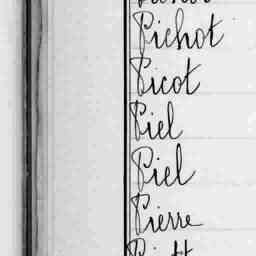 Pichot
Picot
Piel
Piel
Pierre